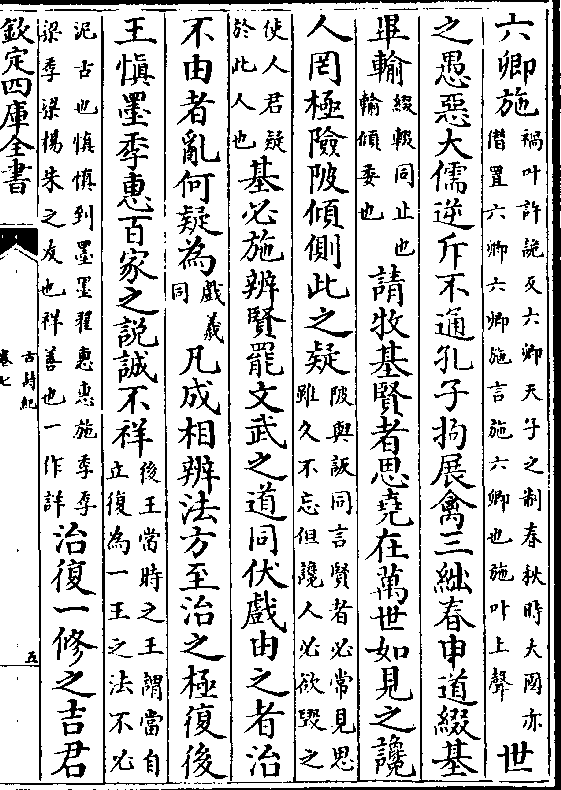 六卿施禍叶許詭反六卿天子之制春秋時大國亦僭置六卿六卿施言施六卿也施叶上聲世
之愚惡大儒逆斥不通孔子拘展禽三絀春申道綴基
畢輸綴輟同止也輸傾委也請牧基賢者思堯在萬世如見之讒
人罔極險陂傾側此之疑陂與詖同言賢者必常見思雖久不忘但讒人必欲毀之
使人君疑於此人也基必施辨賢罷文武之道同伏戲由之者治
不由者亂何疑為戲羲同凡成相辨法方至治之極復後
王慎墨季惠百家之說誠不祥後王當時之王謂當自立復為一王之法不必
泥古也慎慎到墨墨翟惠惠施季季梁季梁楊朱之友也祥善也一作詳治復一修之吉君
欽定四庫全書
古詩紀
卷七
五